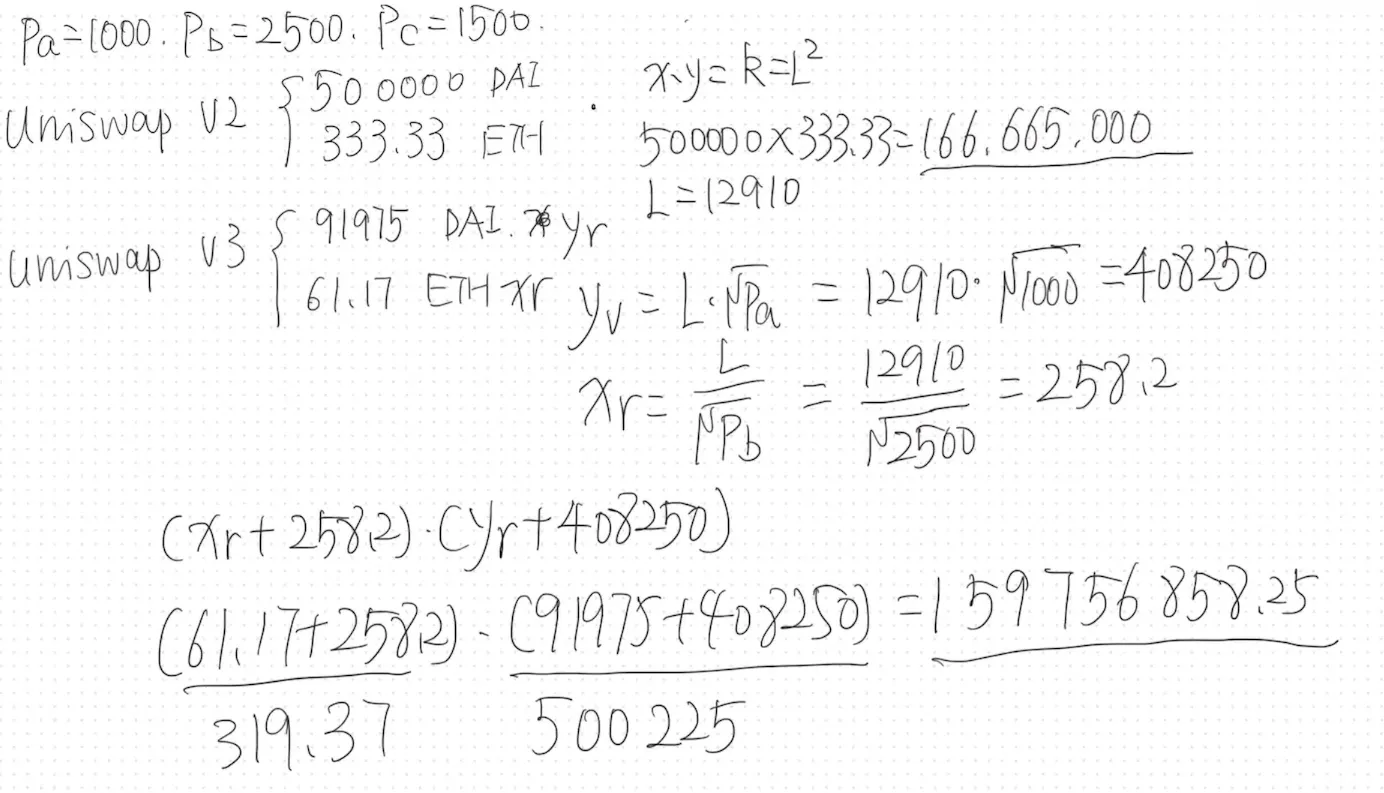 Pa=1000. Pb=2500. Pc=1500.
Uniswap V2 { 500000 DAI
333.33 ETH
x·y=k=L²
500000×333.33=166.665.000
L=12910
Uniswap V3 { 91975 DAI. yr
61.17 ETH xr
yv = L·√Pa = 12910·√1000 = 408250
xr = L/√Pb = 12910/√2500 = 258.2
(xr+258.2)·(yr+408250)
(61.17+258.2)·(91975+408250) = 159756858.25
319.37 500225